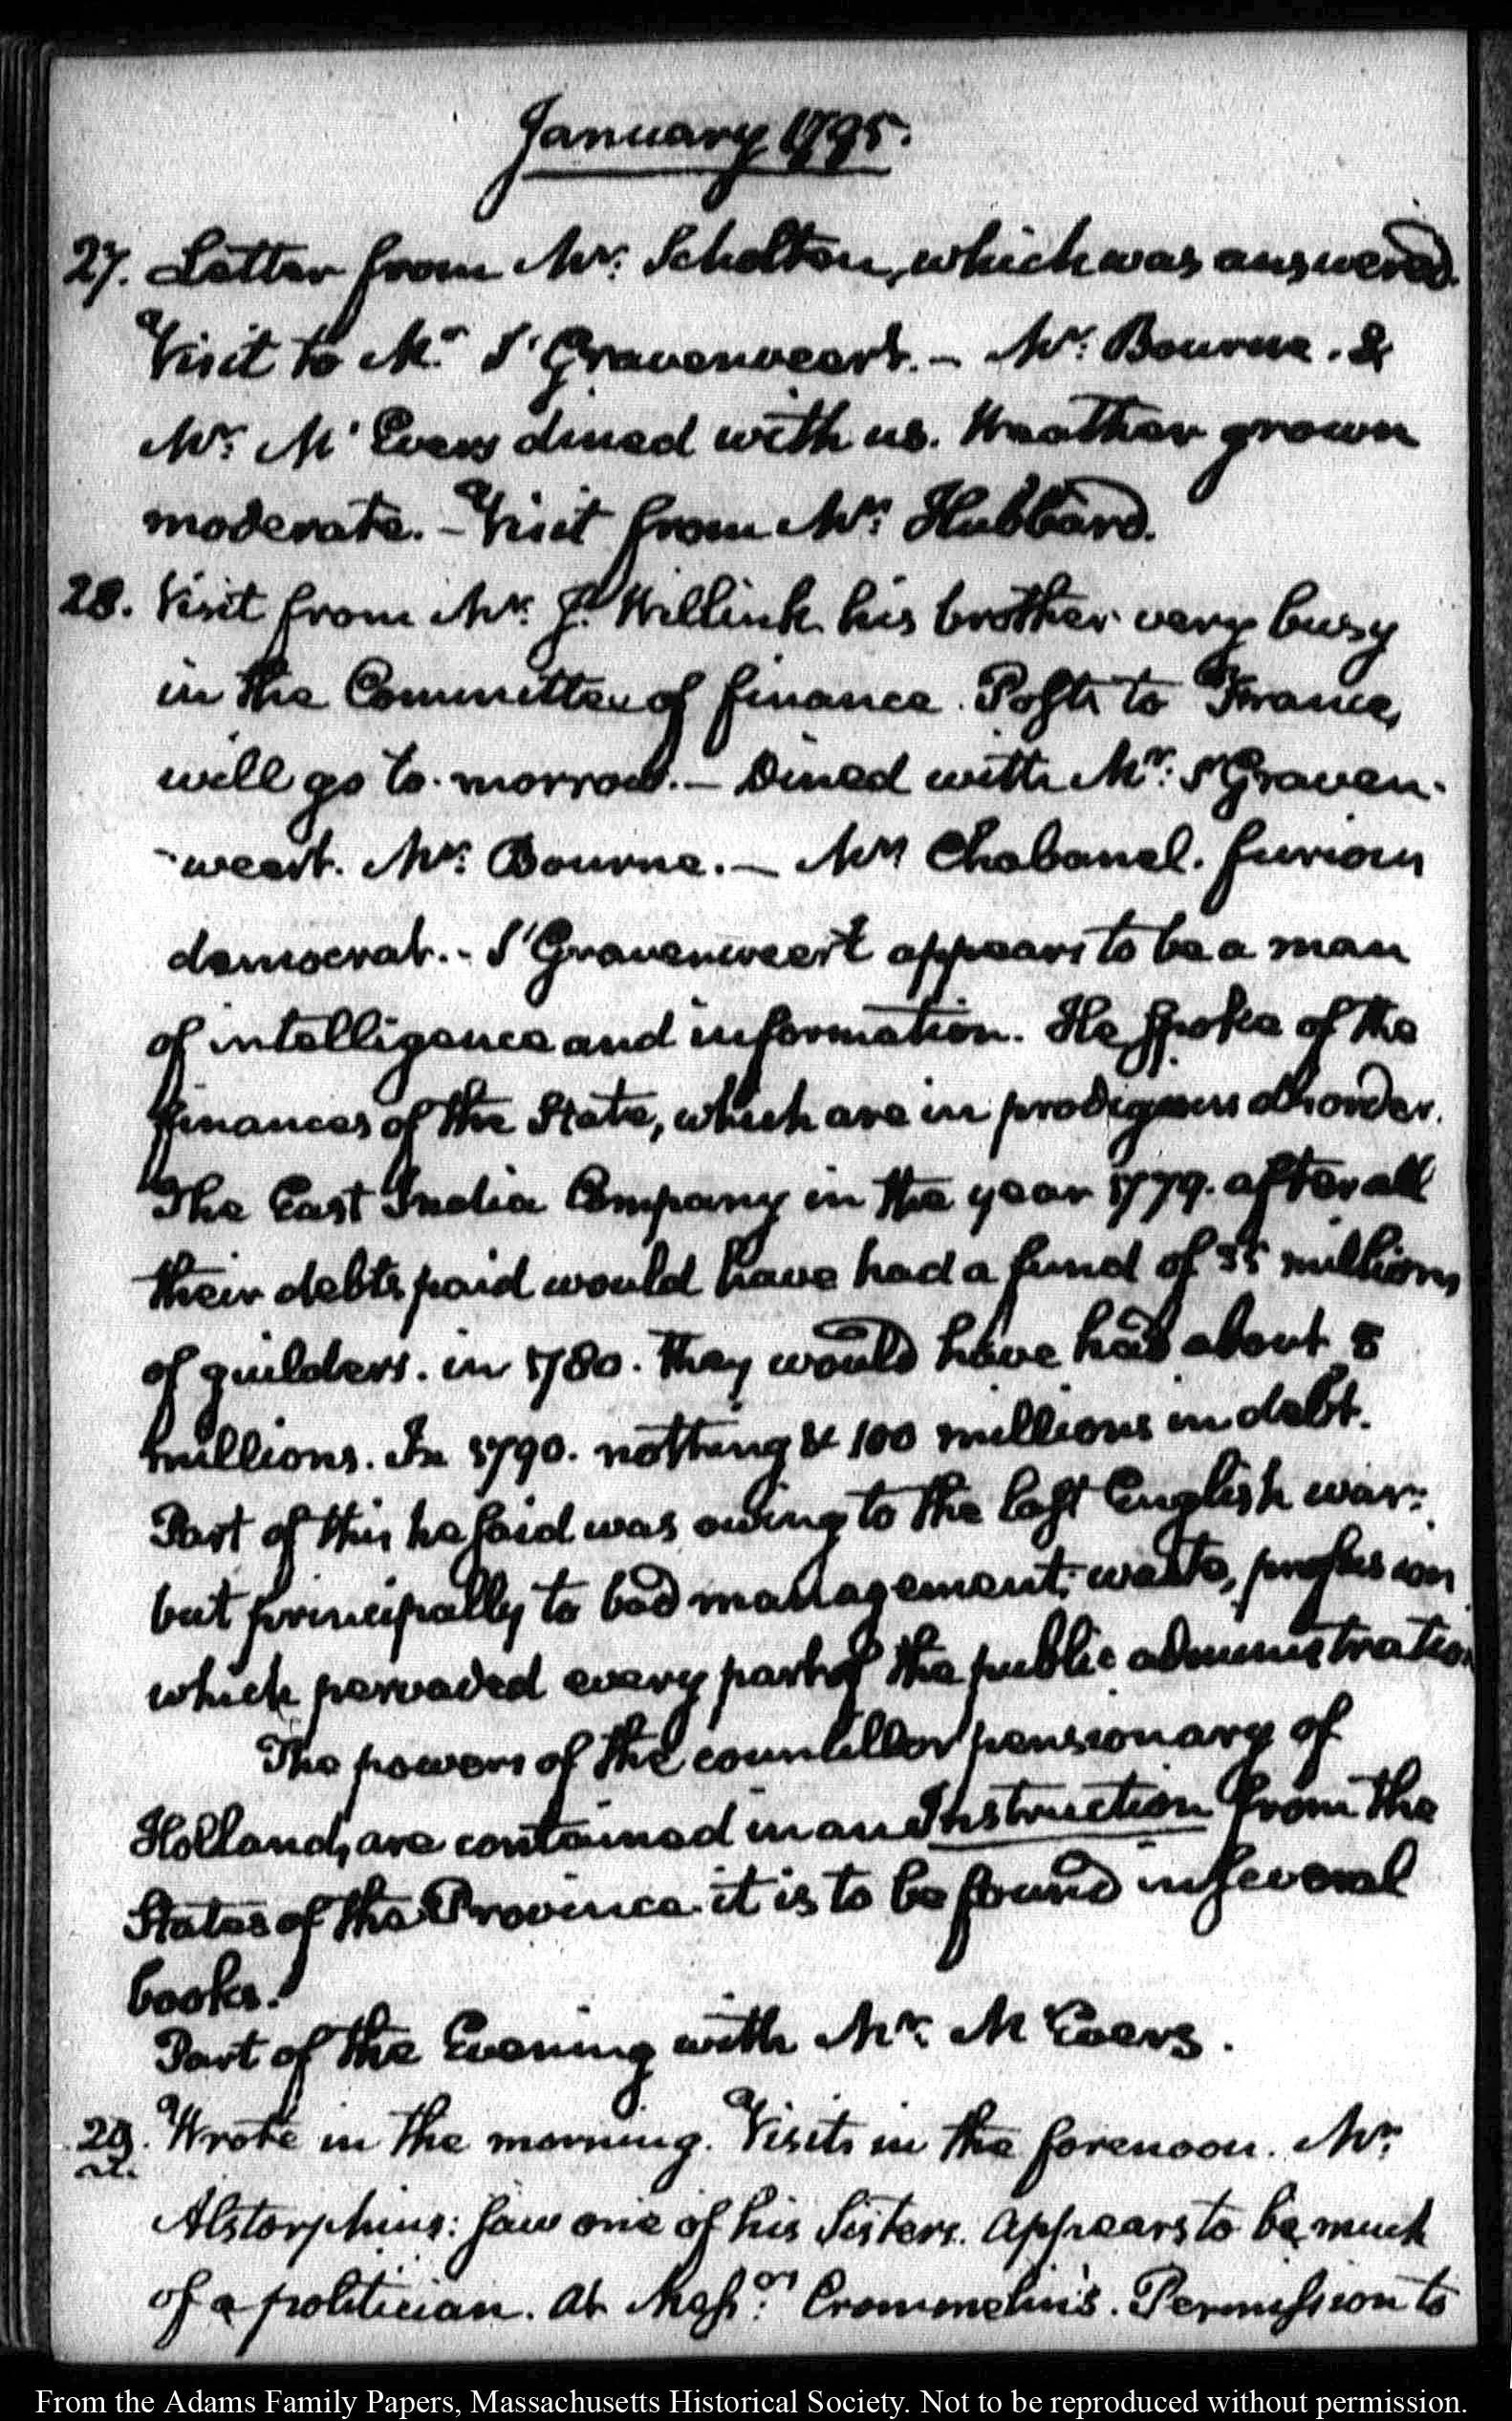 January 1795.
27. Letter from Mr. Scholten, which was answered.
Visit to Mr. S'Gravenweert. – Mr. Bourne. &
Mr. M'Evers dined with us. Weather grown
moderate. – Visit from Mr. Hubbard.
28. Visit from Mr. J. Willink his brother very busy
in the Committee of finance. Posts to France,
will go to-morrow. – Dined with Mr. S'Graven-
-weert. Mr. Bourne. – Mr. Chabanel. furious
democrat. – S'Gravenweert appears to be a man
of intelligence and information. He spoke of the
finances of the State, which are in prodigious disorder.
The East India Company in the year 1779. after all
their debts paid would have had a fund of 35 millions
of guilders. in 1780. they would have had about 8
millions. In 1790. nothing & 100 millions in debt.
Part of this he said was owing to the last English war:
but principally to bad management, waste, profusion
which pervaded every part of the public administration
The powers of the counsellor pensionary of
Holland, are contained in an Instruction from the
States of the Province. it is to be found in several
books.
Part of the Evening with Mr. M'Evers.
29. Wrote in the morning. Visits in the forenoon. Mr.
Alstorphius: saw one of his Sisters. appears to be much
of a politician. at Mess.rs Crommelin's. Permission to
From the Adams Family Papers, Massachusetts Historical Society. Not to be reproduced without permission.